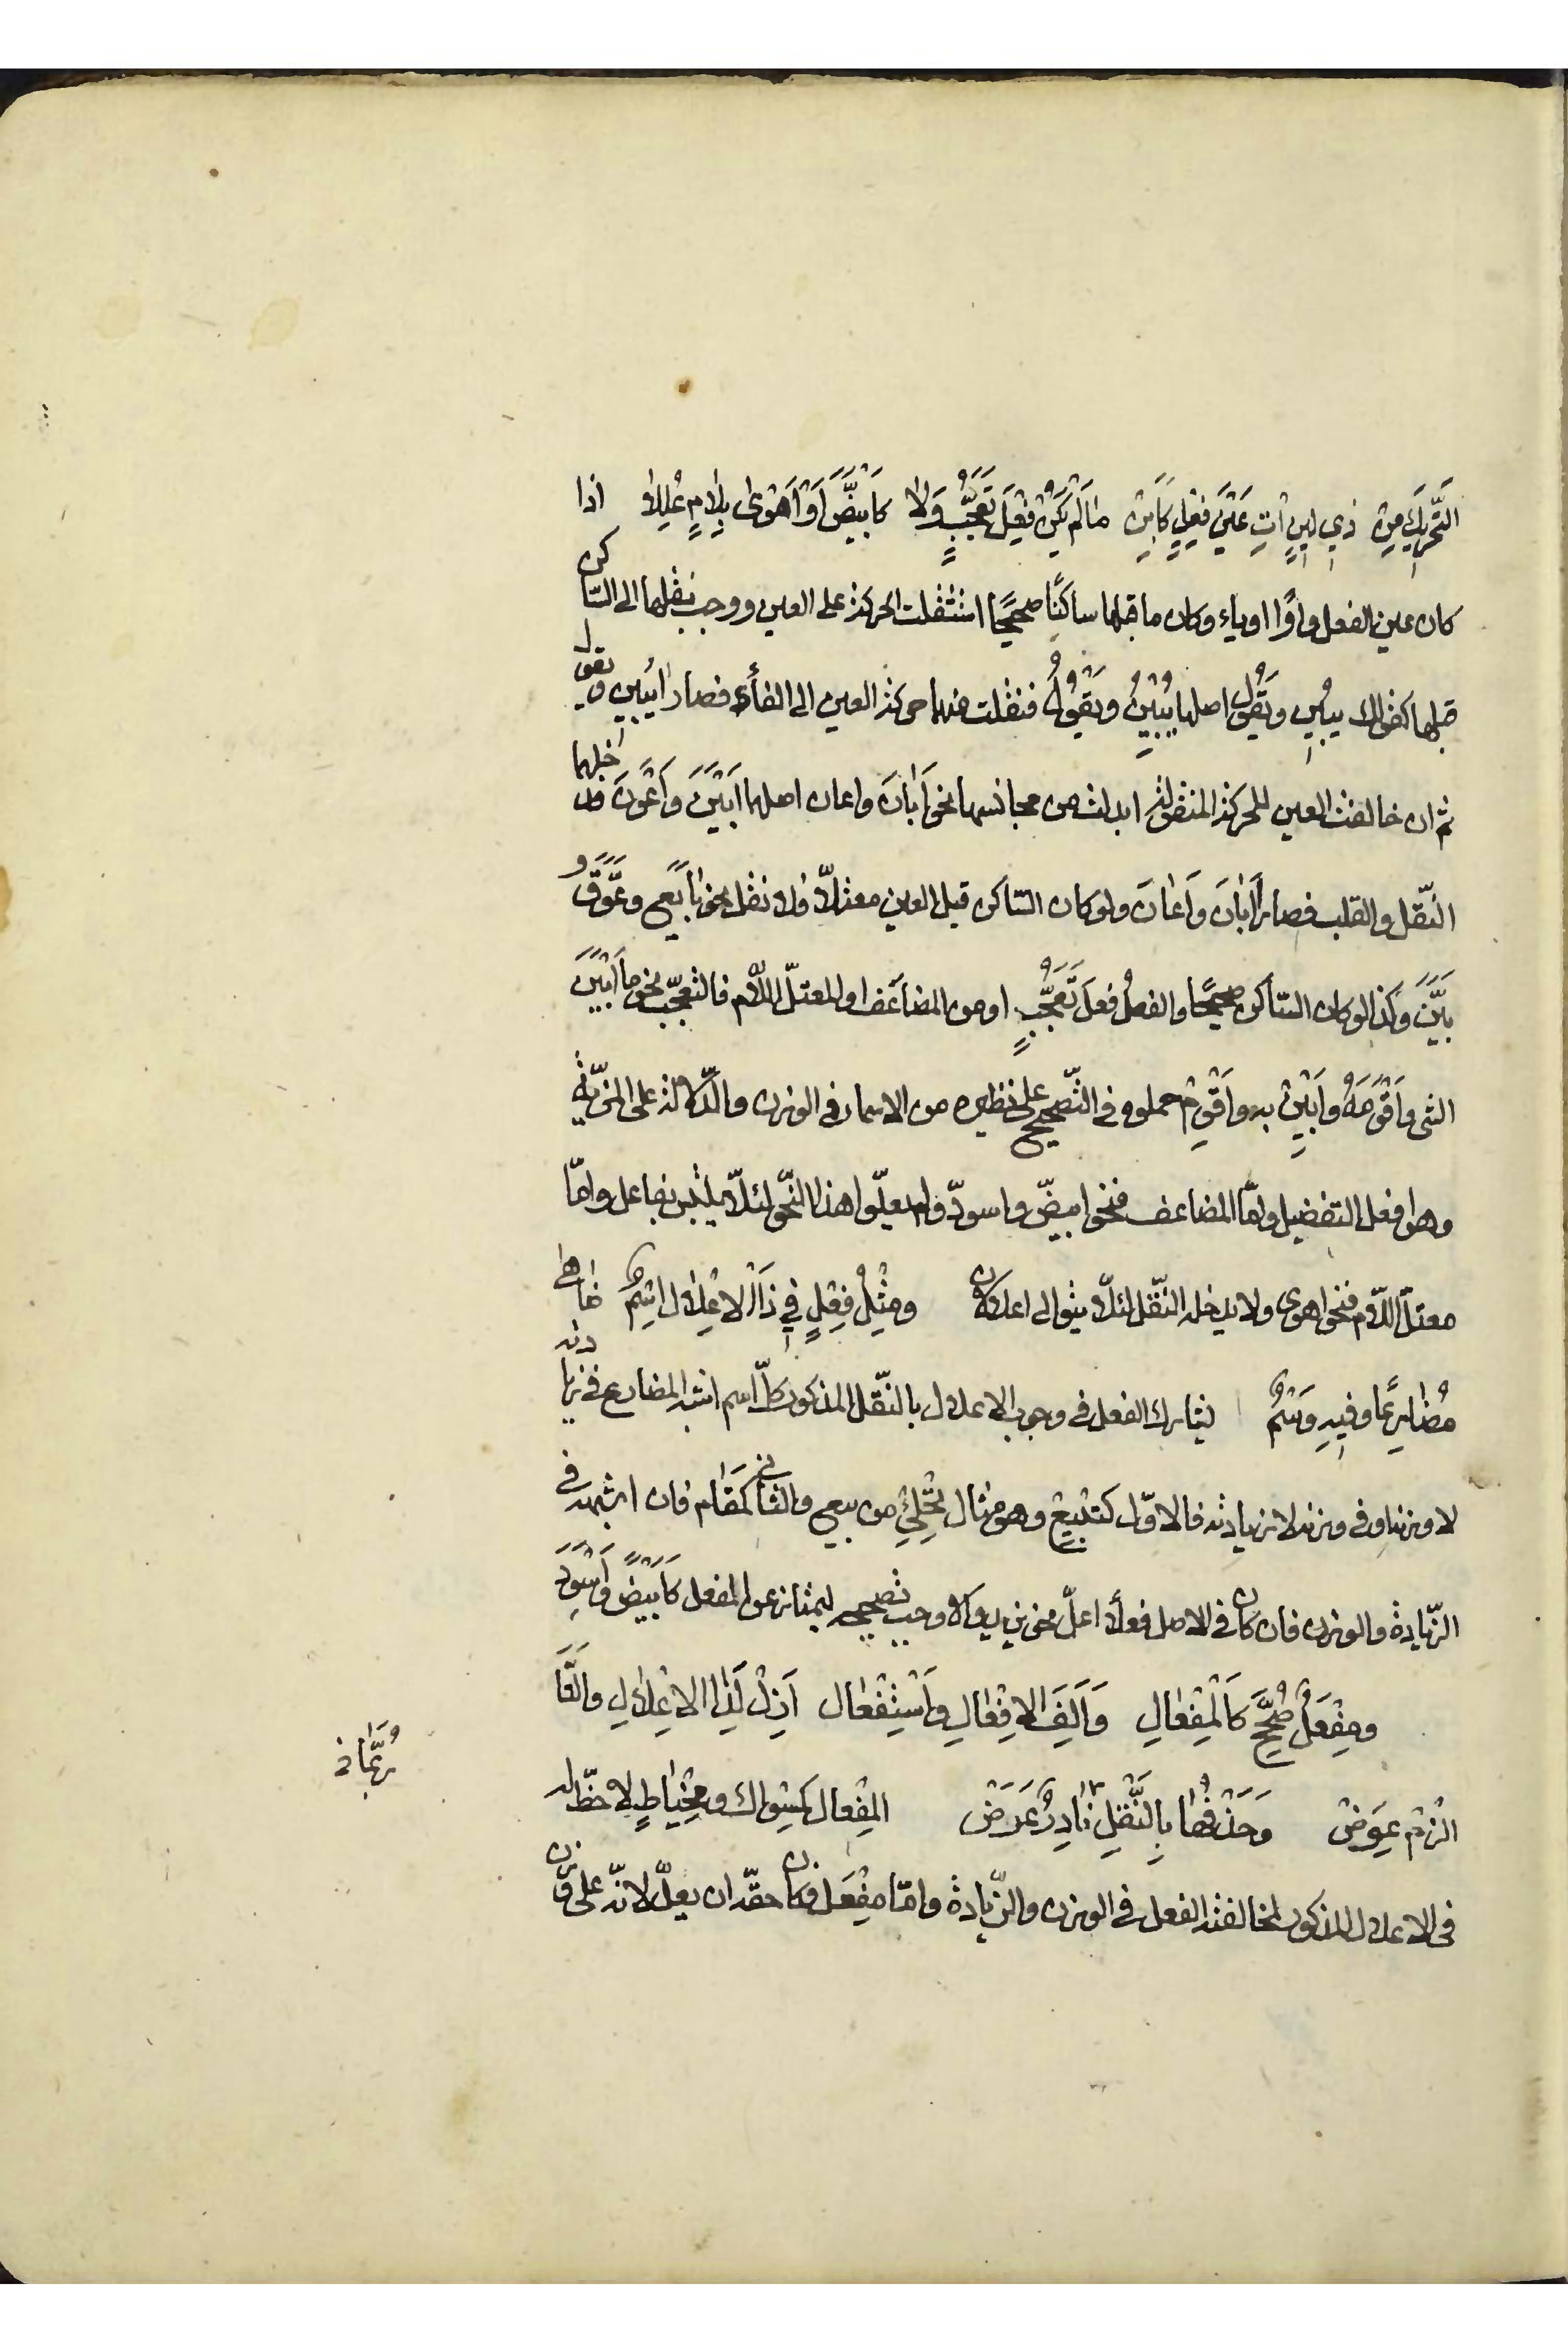 التَّحْرِيكَ مِنْ ذِي لِينٍ اٰتٍ عَيْنَ فِعْلٍ كَاَبِنْ مٰا لَمْ يَكُنْ فِعْلَ تَعَجُّبٍ وَلاٰ كَابْيَضَّ اَوْ اَهْوىٰ بِلاٰمٍ عُلِّلاٰ اذا
كان عين الفعل واوًا او ياء وكان ما قبلها ساكنًا صحيحًا استثقلت الحركة على العين ووجب نقلها الى السّاكن
قبلها كقولك يبِين ويَقُول اصلها يَبْيِنُ ويَقْوُلُ فنقلت منهما حركة العين الى الفاء فصارا يَبِين ويقول
ثم ان خالفت العين للحركة المنقولة ابدلت من مجانسها نحو اَبٰانَ واعان اصلهما اَبْيَنَ وَاَعْوَنَ فدخلهما
النّقل والقلب فصارا اَبٰانَ وَاَعٰانَ ولو كان السّاكن قبل العين معتلّاً فلا نقل نحو بٰايَعَ وعَوَّقَ و
بَيَّنَ وكذا لو كان السّاكن صحيحًا والفعلُ فعلَ تَعَجُّبٍ او من المضاعَف او المعتلّ اللّام فالتعجّب نحو ما اَبْيَنَ
الشئ واَقْوَمَهُ واَبْيِنْ به واَقْوِمْ حملوه فى التّصحيح على نظيره من الاسماء فى الوزن والدّلالة على المزيّة
وهو افعل التفضيل وامّا المضاعف فنحو ابيضّ واسودّ ولم يعلّوا هذا النّحو لئلّا يلتبس بفاعل وامّا
معتلّ اللّام فنحو اهوى ولا يدخله النّقل لئلّا يتوالى اعلالان ومِثْلُ فِعْلٍ فِي ذَا الاْعِلاٰلِ اسْمُ ضٰاهىٰ
مُضٰارِعًا وفِيهِ وَسْمُ يشارك الفعل فى وجوب الاعلال بالنّقل المذكور كلّ اسم اشبه المضارع فى زيادته
لا وزنه او فى وزنه لا زيادته فالاوّل كتِبِيع وهو مثال تِحْلِئ من بيع والثانى كَمَقٰام فان اشبهه فى
الزّيادة والوزن فان كان فى الاصل فعلاً اعلّ نحو يزيد والا وجب تصحيحه ليمتاز عن الفعل كاَبْيَض واَسْوَد
ومِفْعَلُ صُحِّحَ كَالْمِفْعٰالِ وَاَلِفَ الاِفْعٰالِ وَاسْتِفْعٰالِ اَزِلْ لِذَا الاِعْلاٰلِ والتَّا
الْزَمْ عِوَضْ وَحَذْفُهٰا بِالنَّقْلِ نٰادِرًا عَرَضْ المِفعال كمِسواك ومِخْيٰاطٍ لا حظّ له
فى الاعلال المذكور لمخالفته الفعل فى الوزن والزّيادة وامّا مِفْعَل فكان حقّه ان يعلّ لانّه على وزن
رُبَّمٰا